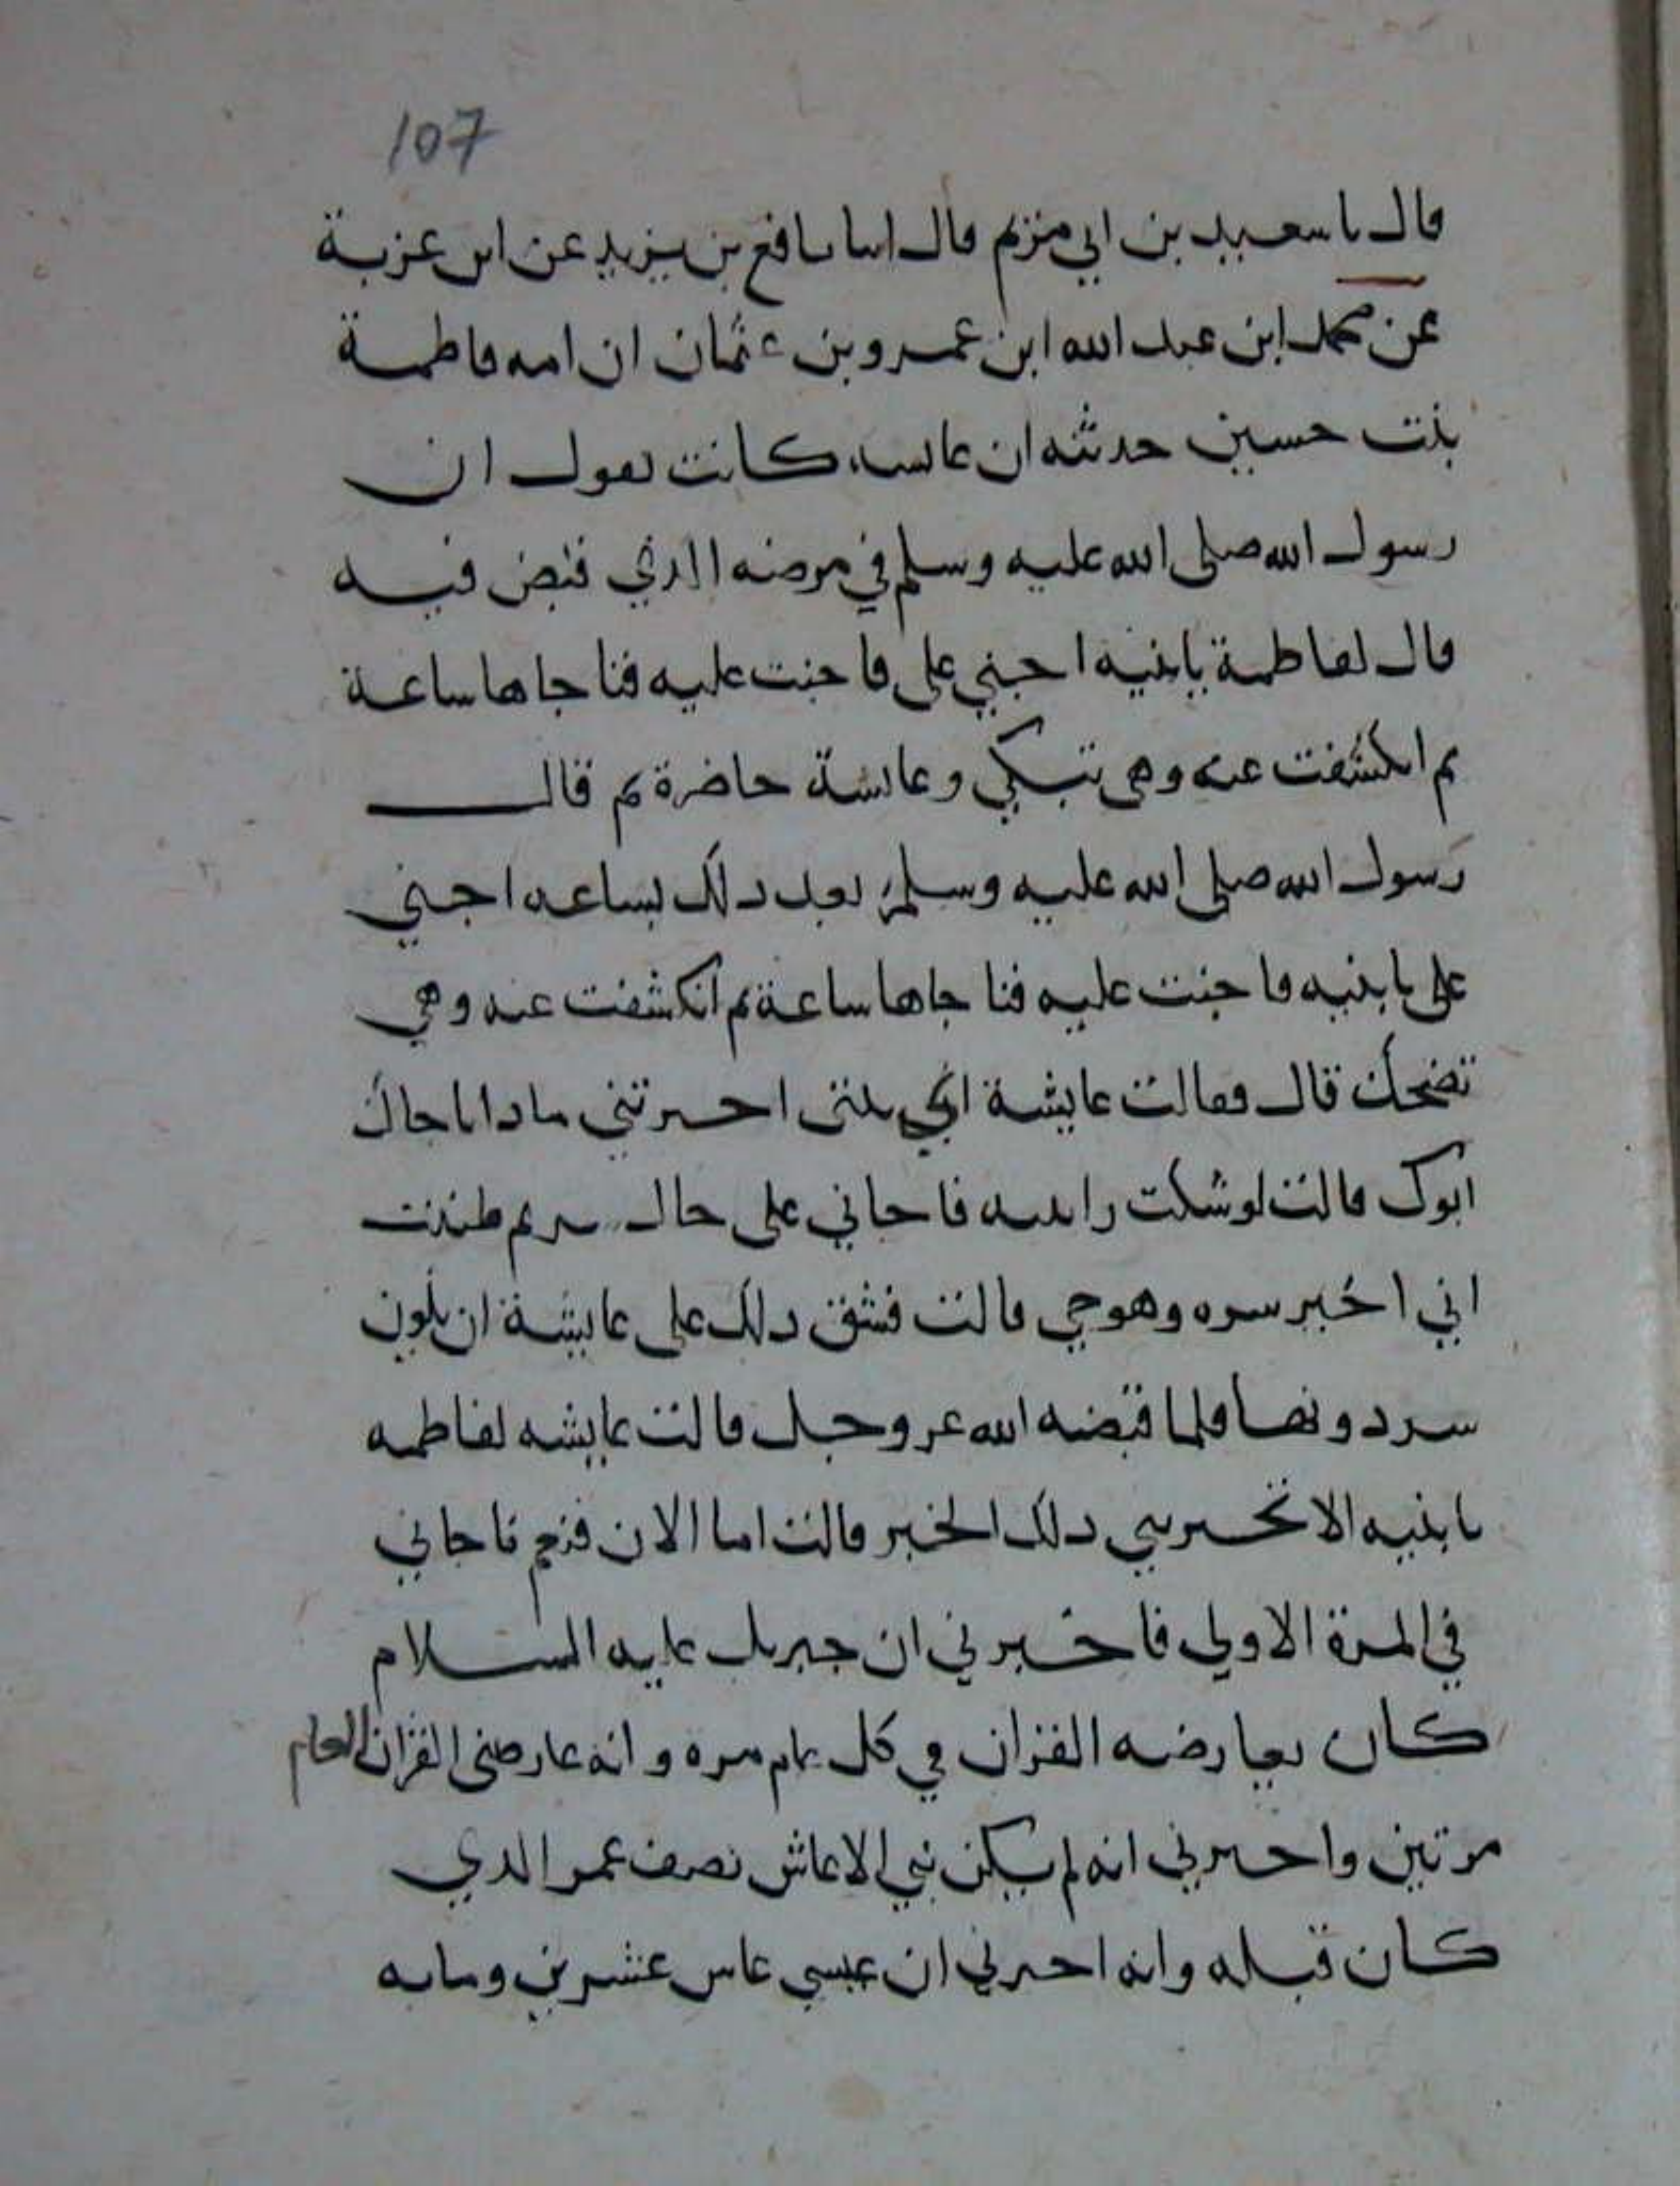 107
قال نا سعيد بن ابي مريم قال انبا نافع بن يزيد عن ابن عزية
عن محمد ابن عبد الله ابن عمرو بن عثمان ان امه فاطمة
بنت حسين حدثته ان عايسه كانت تقول ان
رسول الله صلى الله عليه وسلم في مرضه الذي قبض فيه
قال لفاطمة يا بنيه احني علي فاحنت عليه فناجاها ساعة
ثم انكشفت عنه وهي تبكي وعايشة حاضرة ثم قال
رسول الله صلى الله عليه وسلم بعد دلك بساعه احني
علي يا بنيه فاحنت عليه فناجاها ساعة ثم انكشفت عنه وهي
تضحك قال فقالت عايشة اي بنتى اخبرتني مادا ناجاك
ابوك قالت لوشكت رايته ناجاني على حال سر ثم ظننت
اني اخبر سره وهو حي قالت فشق دلك على عايشة ان يكون
سر دونها فلما قبضه الله عز وجل قالت عايشه لفاطمه
يا بنيه الا تخبريني دلك الخبر قالت اما الان فنعم ناجاني
في المرة الاولي فاخبرني ان جبريل عليه السلام
كان يعارضه القران في كل عام مره وانه عارضنى القران العام
مرتين واخبرني انه لم يكن نبي الا عاش نصف عمر الذي
كان قبله وانه اخبرني ان عيسي عاش عشرين ومايه